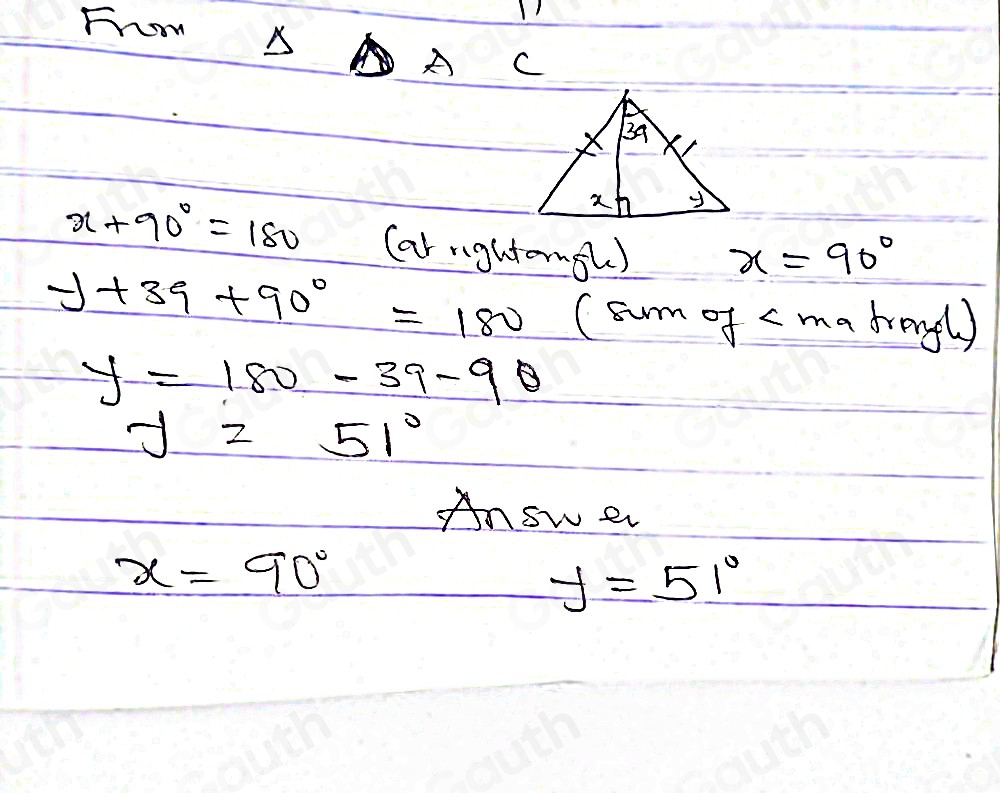 From Δ Δ A C
39
x y
x + 90° = 180 (at rightangle) x = 90°
y + 39 + 90° = 180 (sum of < in a triangle)
y = 180 - 39 - 90
y = 51°
Answer
x = 90° y = 51°